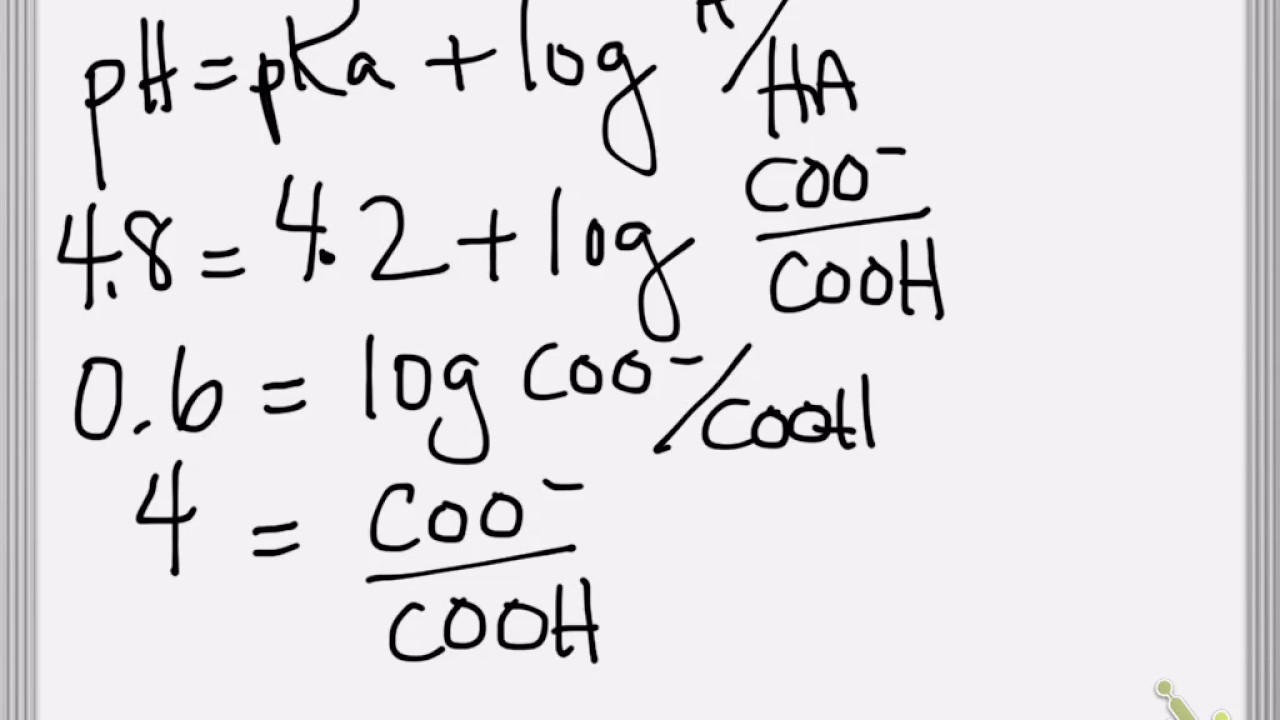 pH = pKa + log A/HA
4.8 = 4.2 + log COO⁻/COOH
0.6 = log COO⁻/COOH
4 = COO⁻/COOH